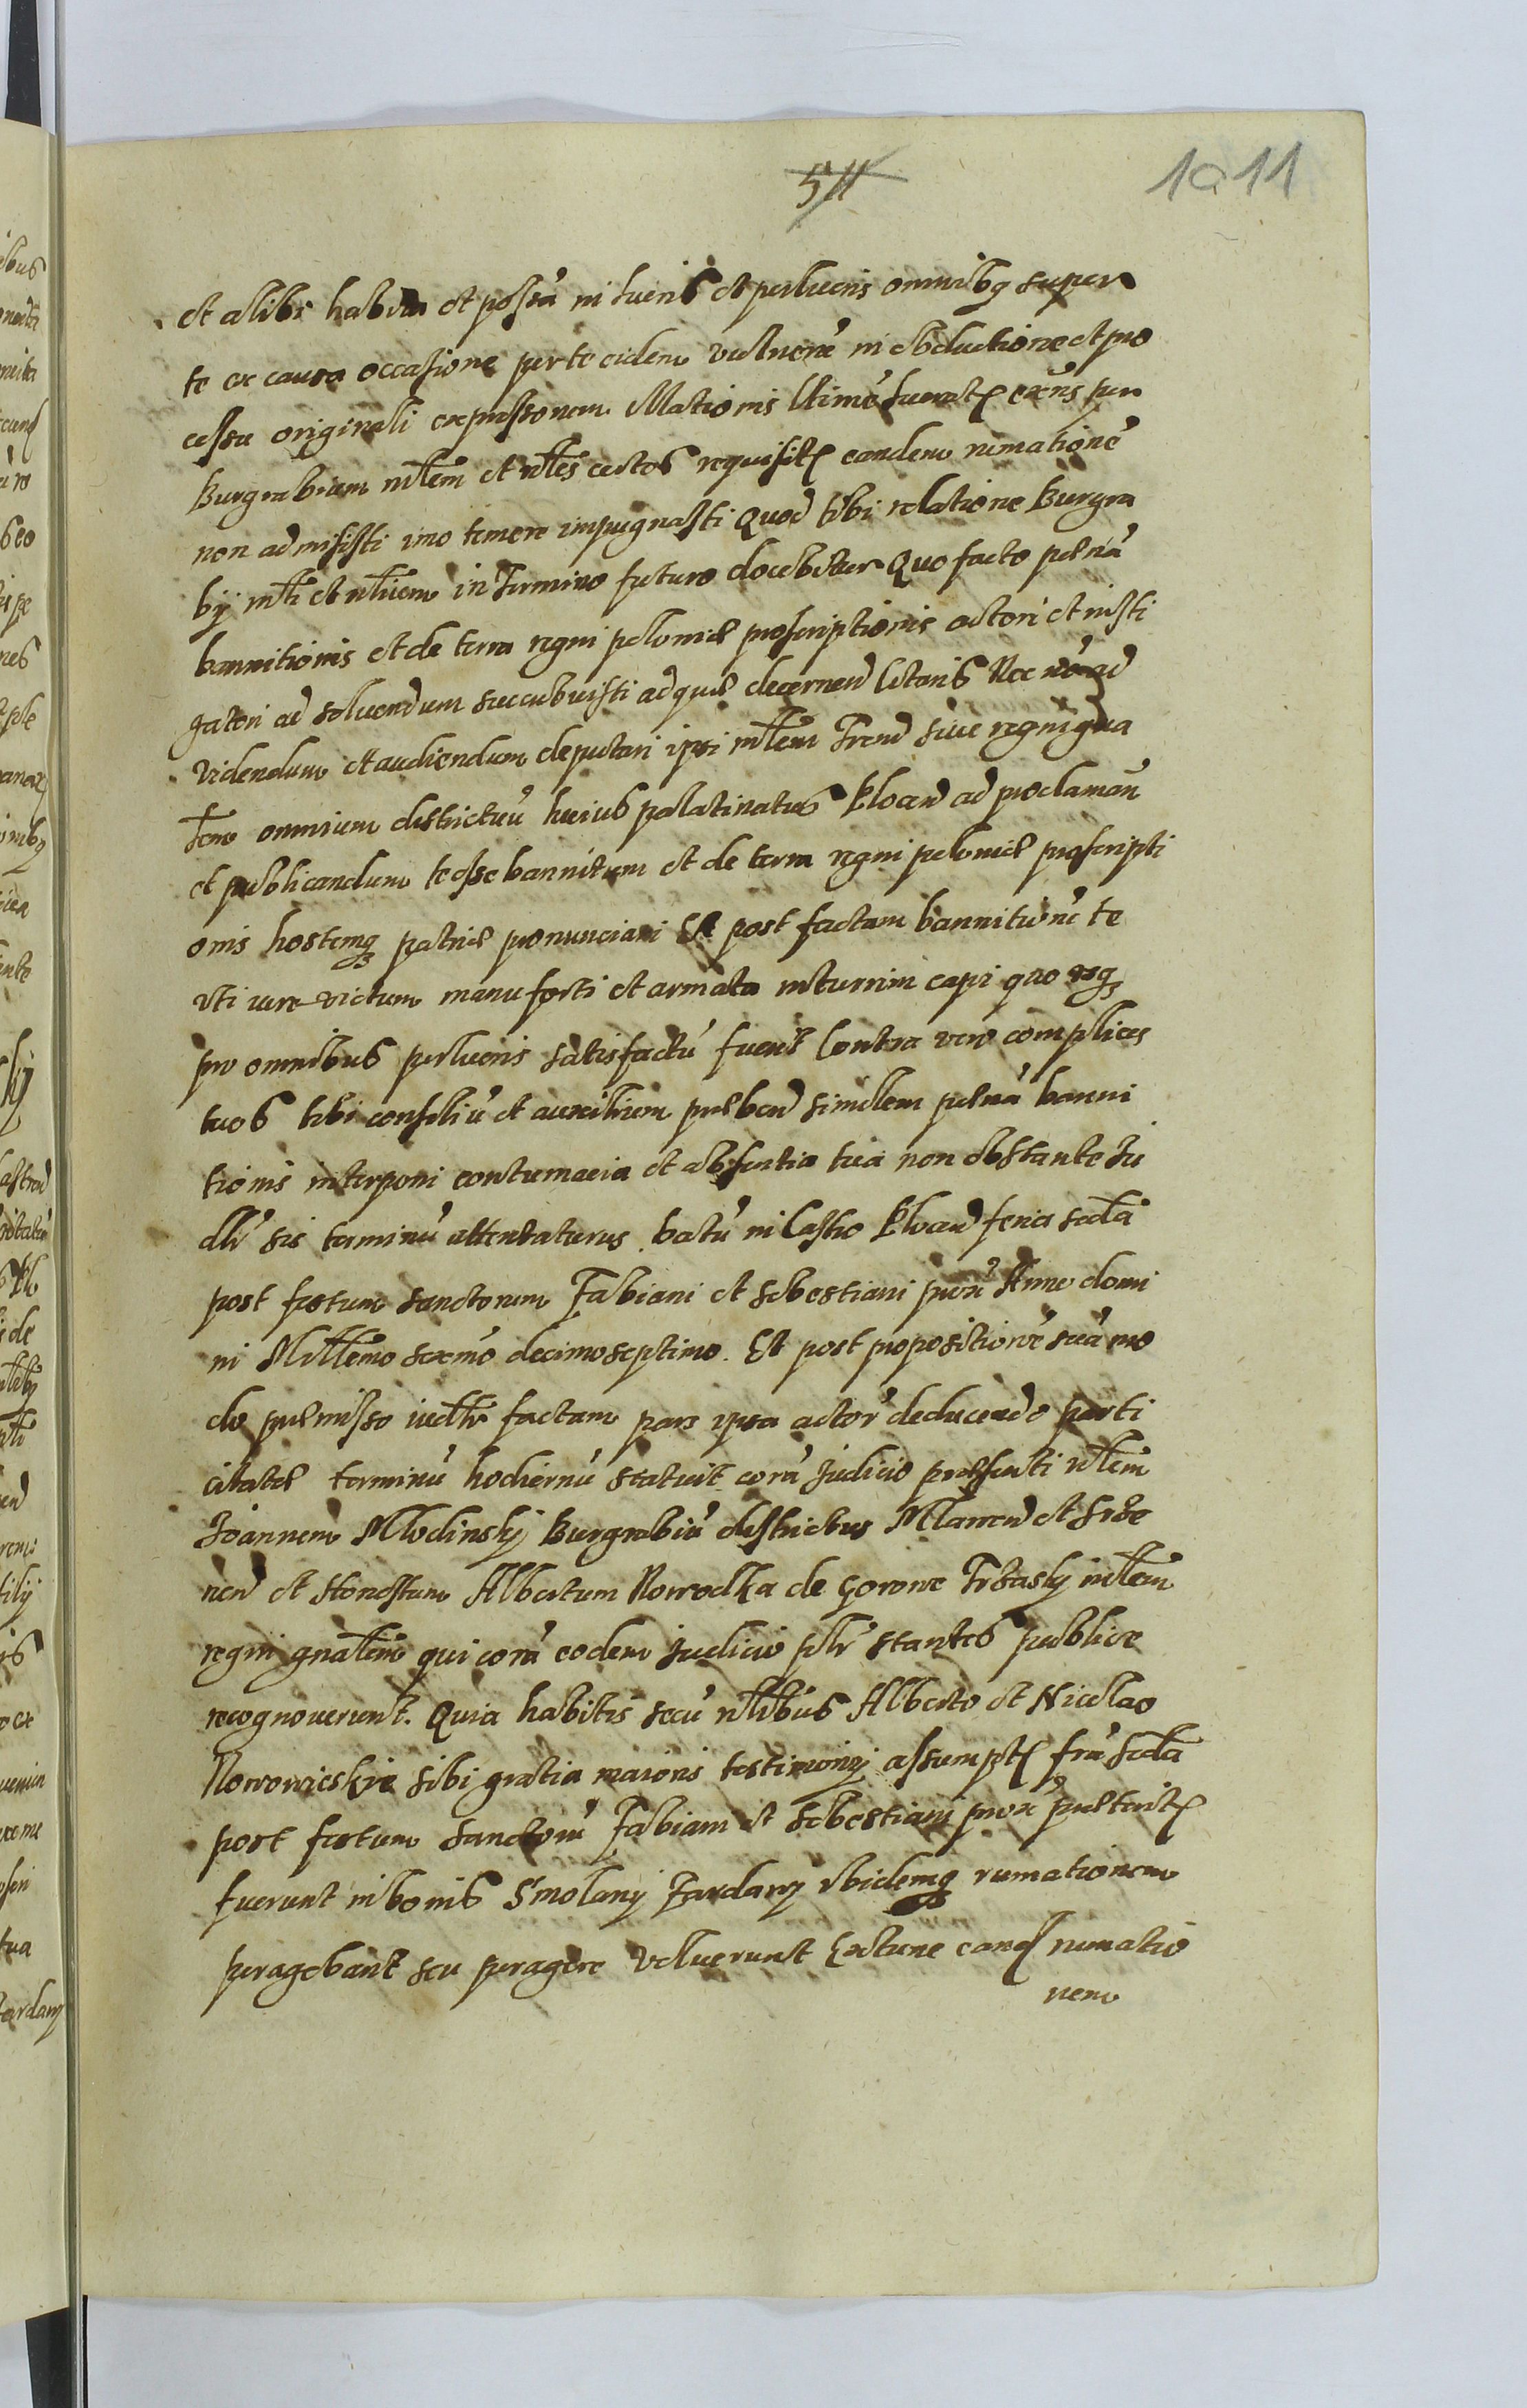 511
1011
et alibi habita et possa in lucris et perlucris omnibq super
te ex causa occasione per te eidem vulnerũ in deductione et pro
cessu originali expressorum illationis ltime lucratʒ extñs per
Burgrabium mlem et nles certos requisitʒ eandem rumationẽ
non admisisti imo temere impugnasti Quod tibi relatione Burgra
bÿ mli et nlium in Termino futuro docebitur Quo facto pænã
bannitionis et de terra regni poloniæ proscriptionis actori et insti
gatori ad soluendum succubuisti ad quæ decernend citaris Nec nõ ad
videndum et audiendum deputari ipsi mlem Trend siue regnigna
lem omnium districtuũ huius palatinatus Plocen ad proclamañ
et publicandum te esse bannitum et de terra regni poloniæ proscripti
onis hostemq patriæ pronunciari Et post factam bannitionẽ te
vti iure victum manu forti et armata in turrim capi quo vsq
pro omnibus perlucris satisfactũ fuerit Contra vero complices
tuos tibi consiliũ et auxilium præbend similem pænã banni
tionis interponi contumacia et absentia tua non obstante Iu
dlr̃ sis terminũ attentaturus. Datũ in Castro Plocen feria scda
post festum sanctorum Fabiani et Sebestiani prox Anno domi
ni Millemo sexmo decimoseptimo. Et post propositionẽ suã mo
do præmisso iudlr factam pars ipsa actor̃ deducendo parti
citatæ terminũ hodiernũ statuit corã Iudicio præsenti nlem
Joannem Mlodinskÿ Burgrabiũ districtus Mlawen et Srze
nen et Honestum Albertum Nowodka de Gorowe Trzaskÿ mlem
regni gnalem qui corã eodem Iudicio plr̃ stantes publice
recognouerunt. Quia habitis secũ nlibus Alberto et Nicolao
Nowowieskie sibi gratia maioris testimonÿ assumptʒ frã scda
post festum sanctorũ Fabiani et Sebestiani prox præteritʒ
fuerunt in bonis Smolanÿ Zardawÿ Ibidemq rumationem
peragebant seu peragere voluerunt Et tunc eand rumatio
nem